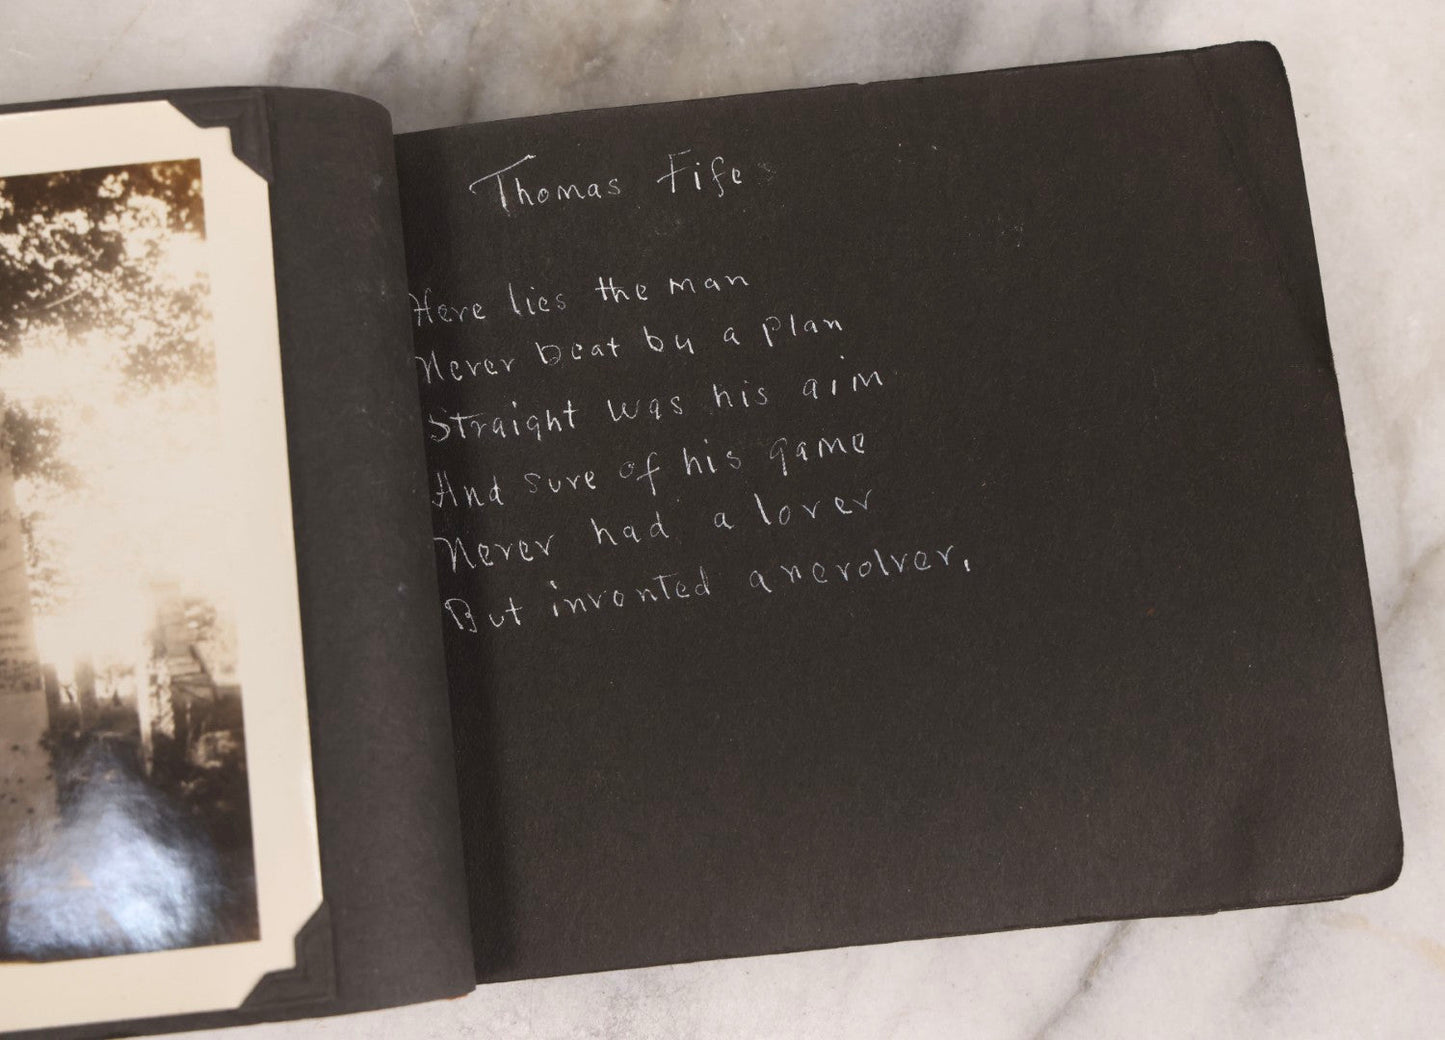 Thomas Fife
Here lies the man
Never beat by a plan
Straight was his aim
And sure of his game
Never had a lover
But invented a revolver.